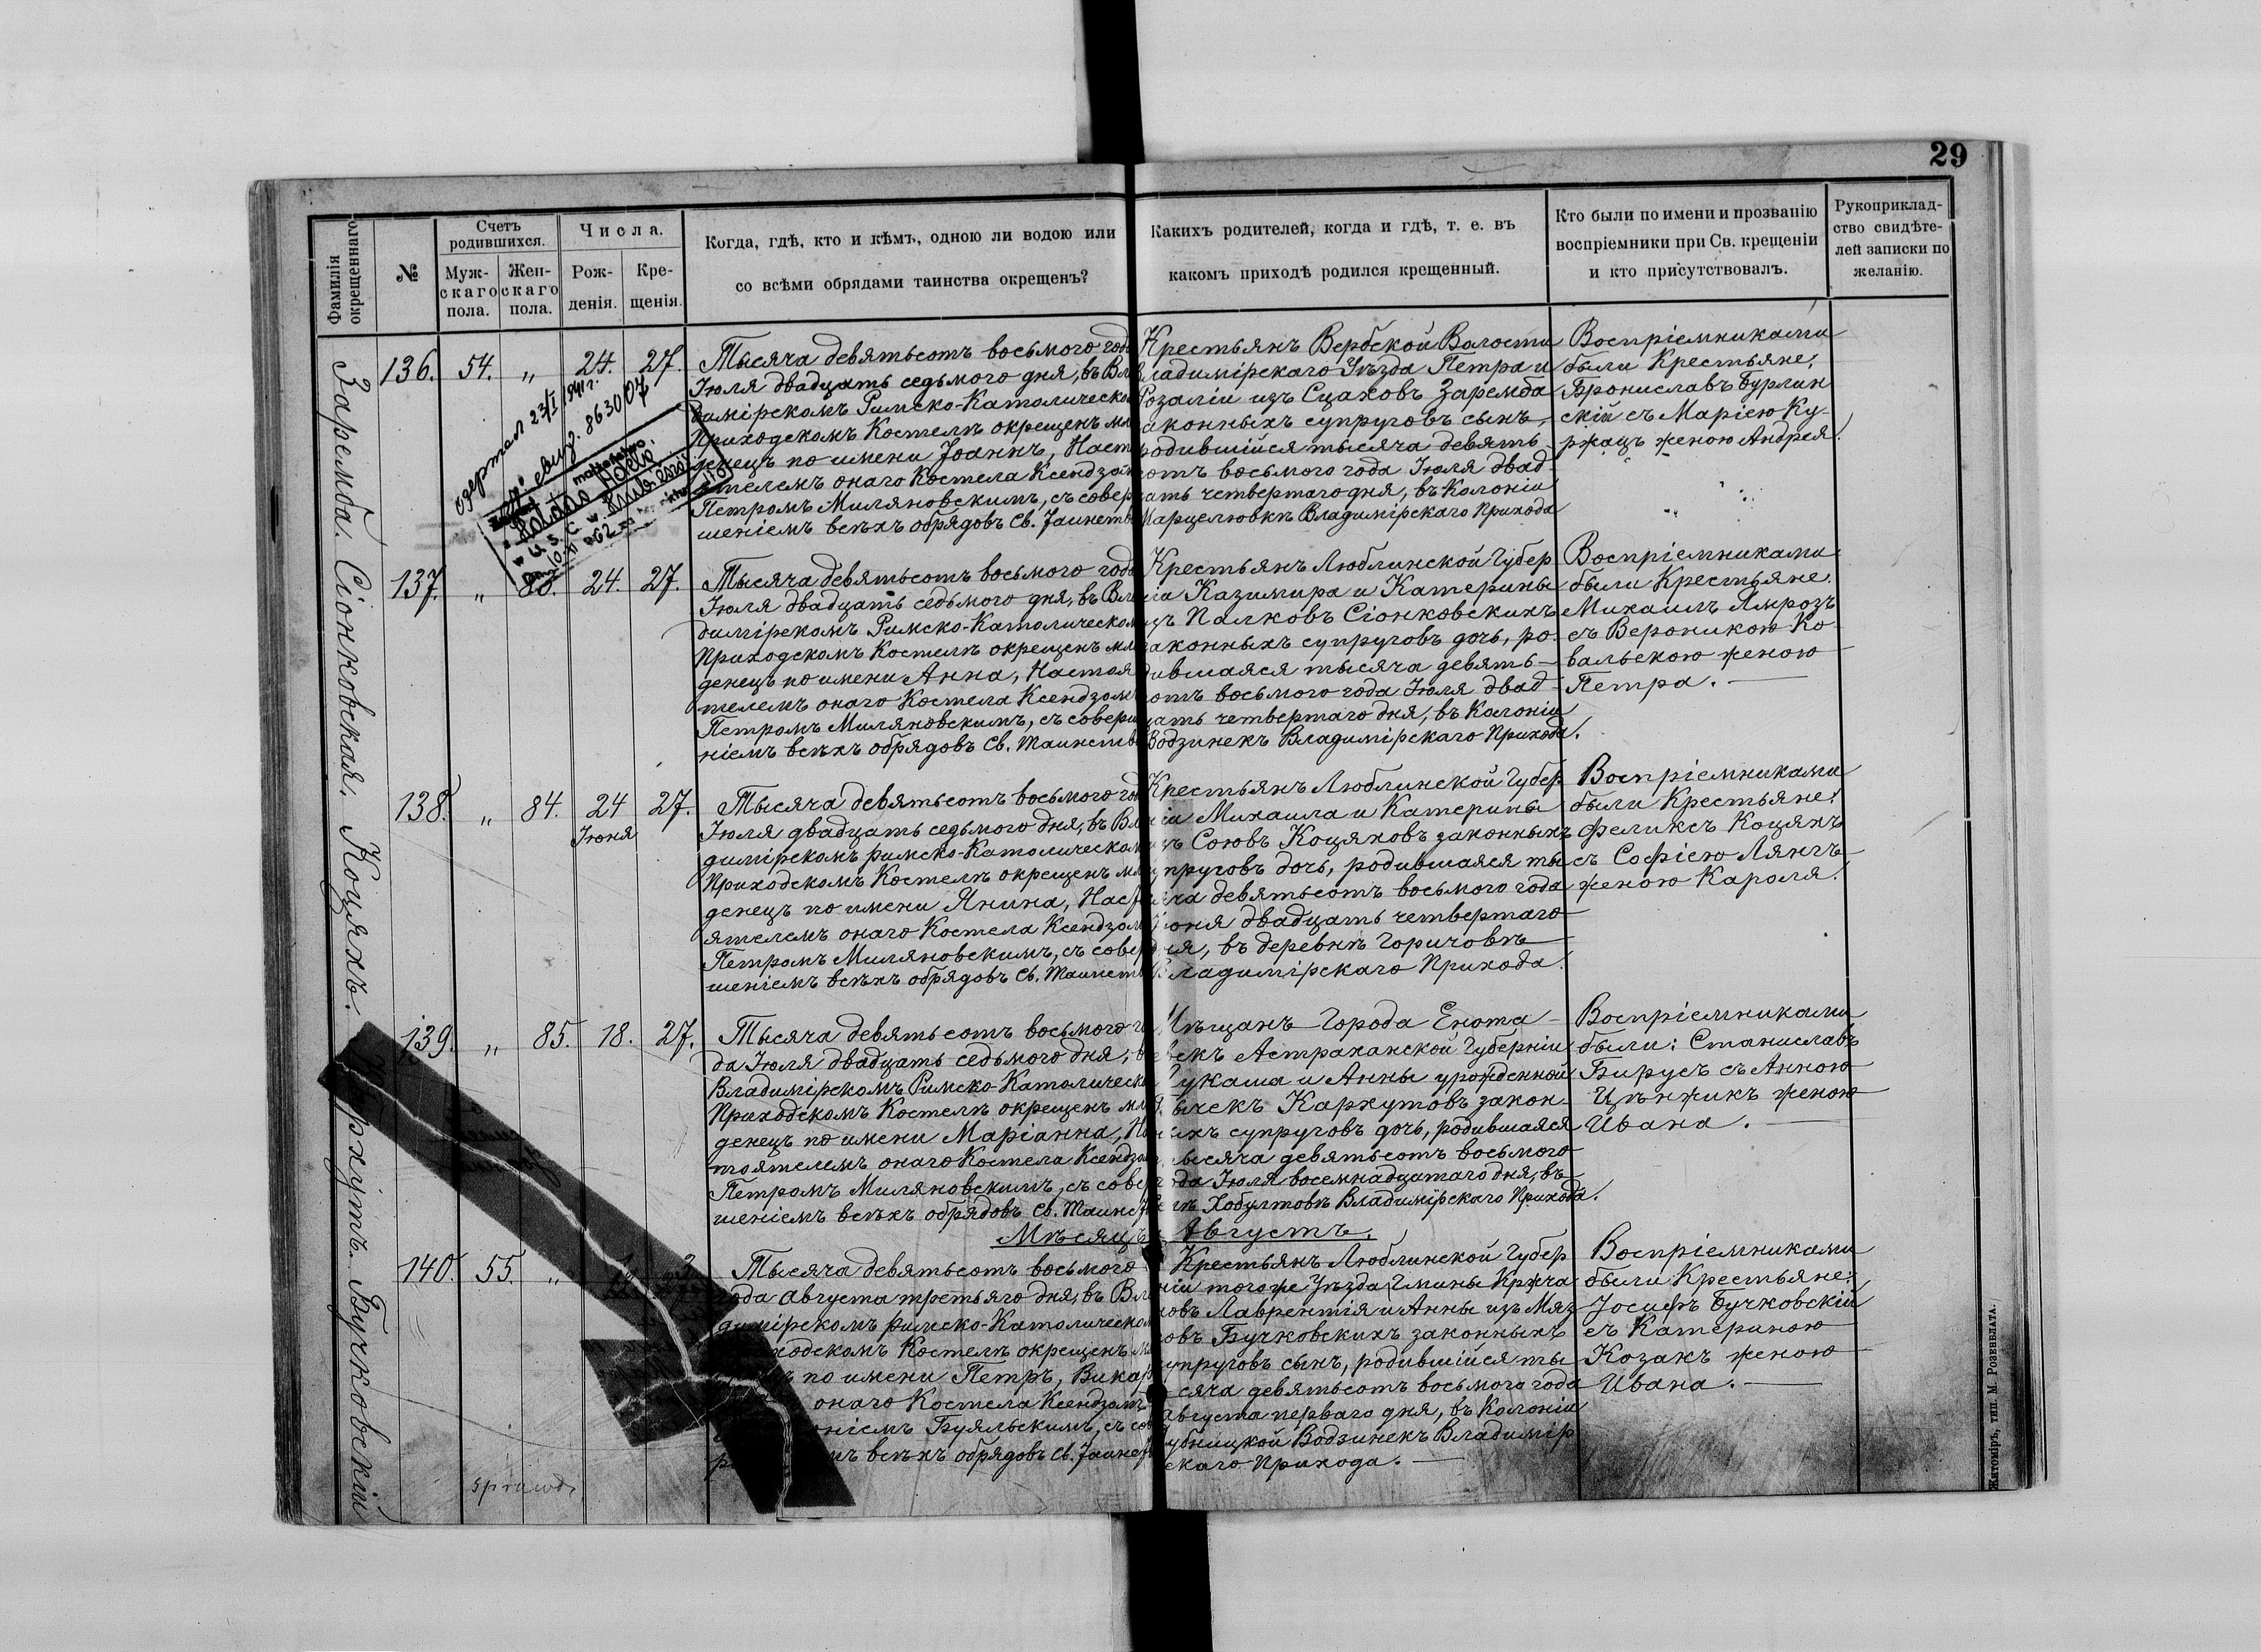 29
Фамилія окрещеннаго
№
Счетъ родившихся.
Муж-
скаго
пола.
Жен-
скаго
пола.
Числа.
Рож-
денія.
Кре-
щенія.
Когда, гдѣ, кто и кѣмъ, одною ли водою или
со всѣми обрядами таинства окрещенъ?
Какихъ родителей, когда и гдѣ, т. е. въ
какомъ приходѣ родился крещенный.
Кто были по имени и прозванію
воспріемники при Св. крещеніи
и кто присутствовалъ.
Рукоприклад-
ство свидѣте-
лей записки по
желанію.
Заремба.
136. 54. „ 24. 27.
Тысяча девятьсотъ восьмого года
Іюля двадцать седьмого дня, въ Вла
димірскомъ Римско-Католическом
Приходскомъ Костелѣ окрещенъ мла
денецъ по имени Іоаннъ, Наст
оятелемъ онаго Костела Ксендзом
Петромъ Миляновскимъ, съ совер
шеніемъ всѣхъ обрядовъ Св. Таинств
Крестьянъ Вербской Волости
Владимірскаго Уѣзда Петра и
Розаліи изъ Сцаховъ Заремба
законныхъ супруговъ сынъ,
родившійся тысяча девять
сотъ восьмого года Іюля двад
цать четвертаго дня, въ Колоніи
Марцелювкѣ Владимірскаго Прихода
Воспріемниками
были Крестьяне:
Брониславъ Бурлин
скій съ Маріею Ку-
ржацъ женою Андрея.
одержал 23/I 1941 г.
863007
Сіонковская.
137. „ 83. 24. 27.
Тысяча девятьсотъ восьмого года
Іюля двадцать седьмого дня, въ Вла
димірскомъ Римско-Католическом
Приходскомъ Костелѣ окрещенъ мла
денецъ по имени Анна, Настоя
телемъ онаго Костела Ксендзом
Петромъ Миляновскимъ, съ соверше
ніемъ всѣхъ обрядовъ Св. Таинств
Крестьянъ Люблинской Губер
ніи Казимира и Катерины
изъ Палковъ Сіонковскихъ
законныхъ супруговъ дочь, ро-
дившаяся тысяча девять
сотъ восьмого года Іюля двад
цать четвертаго дня, въ Колоніи
Водзинекъ Владимірскаго Прихода.
Воспріемниками
были Крестьяне:
Михаилъ Ямрозъ
съ Вероникою Ко
вальскою женою
Петра.
Коцяхъ.
138. „ 84. 24 Іюня 27.
Тысяча девятьсотъ восьмого год
Іюля двадцать седьмого дня, въ Вла
димірскомъ римско-Католическом
Приходскомъ Костелѣ окрещенъ мла
денецъ по имени Янина, Наст
оятелемъ онаго Костела Ксендзом
Петромъ Миляновскимъ, съ совер
шеніемъ всѣхъ обрядовъ Св. Таинств
Крестьянъ Люблинской Губер
ніи Михаила и Катерины
изъ Соювъ Коцяховъ законныхъ
супруговъ дочь, родившаяся ты
сяча девятьсотъ восьмого года
Іюня двадцать четвертаго
дня, въ деревнѣ Горичовѣ
Владимірскаго Прихода.
Воспріемниками
были Крестьяне:
Феликсъ Коцяхъ
съ Софіею Лянгъ
женою Кароля.
139. „ 85. 18. 27.
Тысяча девятьсотъ восьмого го
да Іюля двадцать седьмого дня, въ
Владимірскомъ Римско-Католическ
Приходскомъ Костелѣ окрещенъ мла
денецъ по имени Маріанна, На
стоятелемъ онаго Костела Ксендзом
Петромъ Миляновскимъ, съ совер
шеніемъ всѣхъ обрядовъ Св. Таинств
Мѣщанъ Города Енота
евскъ Астраханской Губерніи
Лукаша и Анны урожденной
Каркутовъ закон-
ныхъ супруговъ дочь, родившаяся
тысяча девятьсотъ восьмого
года Іюля восемнадцатаго дня, въ
селѣ Хобултовѣ Владимірскаго Прихода.
Воспріемниками
были: Станиславъ
Бирусъ съ Анною
Цѣнжикъ женою
Ивана.
Мѣсяцъ Августъ.
Бучковскій
140. 55. „
Тысяча девятьсотъ восьмого
года Августа третьяго дня, въ Вла
димірскомъ римско-Католическом
Приходскомъ Костелѣ окрещенъ м
по имени Петръ, Викар
онаго Костела Ксендзомъ
Буяльскимъ, съ сов
всѣхъ обрядовъ Св. Таинств
Крестьянъ Люблинской Губер
ніи тогоже Уѣзда Гмины Кржча
новъ Лаврентія и Анны изъ Мяз
овъ Бучковскихъ законныхъ
супруговъ сынъ, родившійся ты
сяча девятьсотъ восьмого года
Августа перваго дня, въ Колоніи
Дубницкой Водзинекъ Владимір
скаго Прихода.
Воспріемниками
были Крестьяне:
Іосифъ Бучковскій
съ Катериною
Козакъ женою
Ивана.
Житоміръ, тип. М. Розенблата.